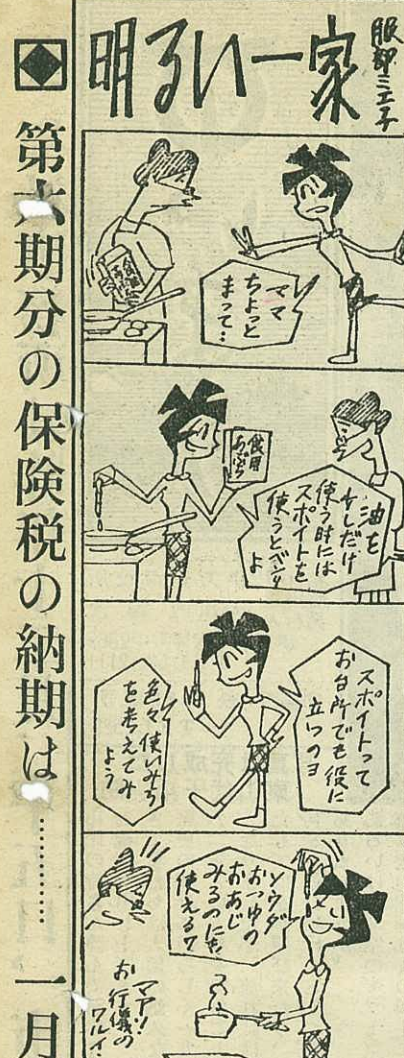 明るい一家
服部ミエ子
ママ
ちょっと
まって…
食用
あぶら
油を
少しだけ
使う時には
スポイトを
使うとベンリ
よ
スポイトって
お台所でも役に
立つのヨ
色々使いみち
を考えてみ
よう
ソウダ
おつゆの
おあじ
みるのにも
使える!!
マアッ
お行儀の
ワルイ
◆第六期分の保険税の納期は…………一月